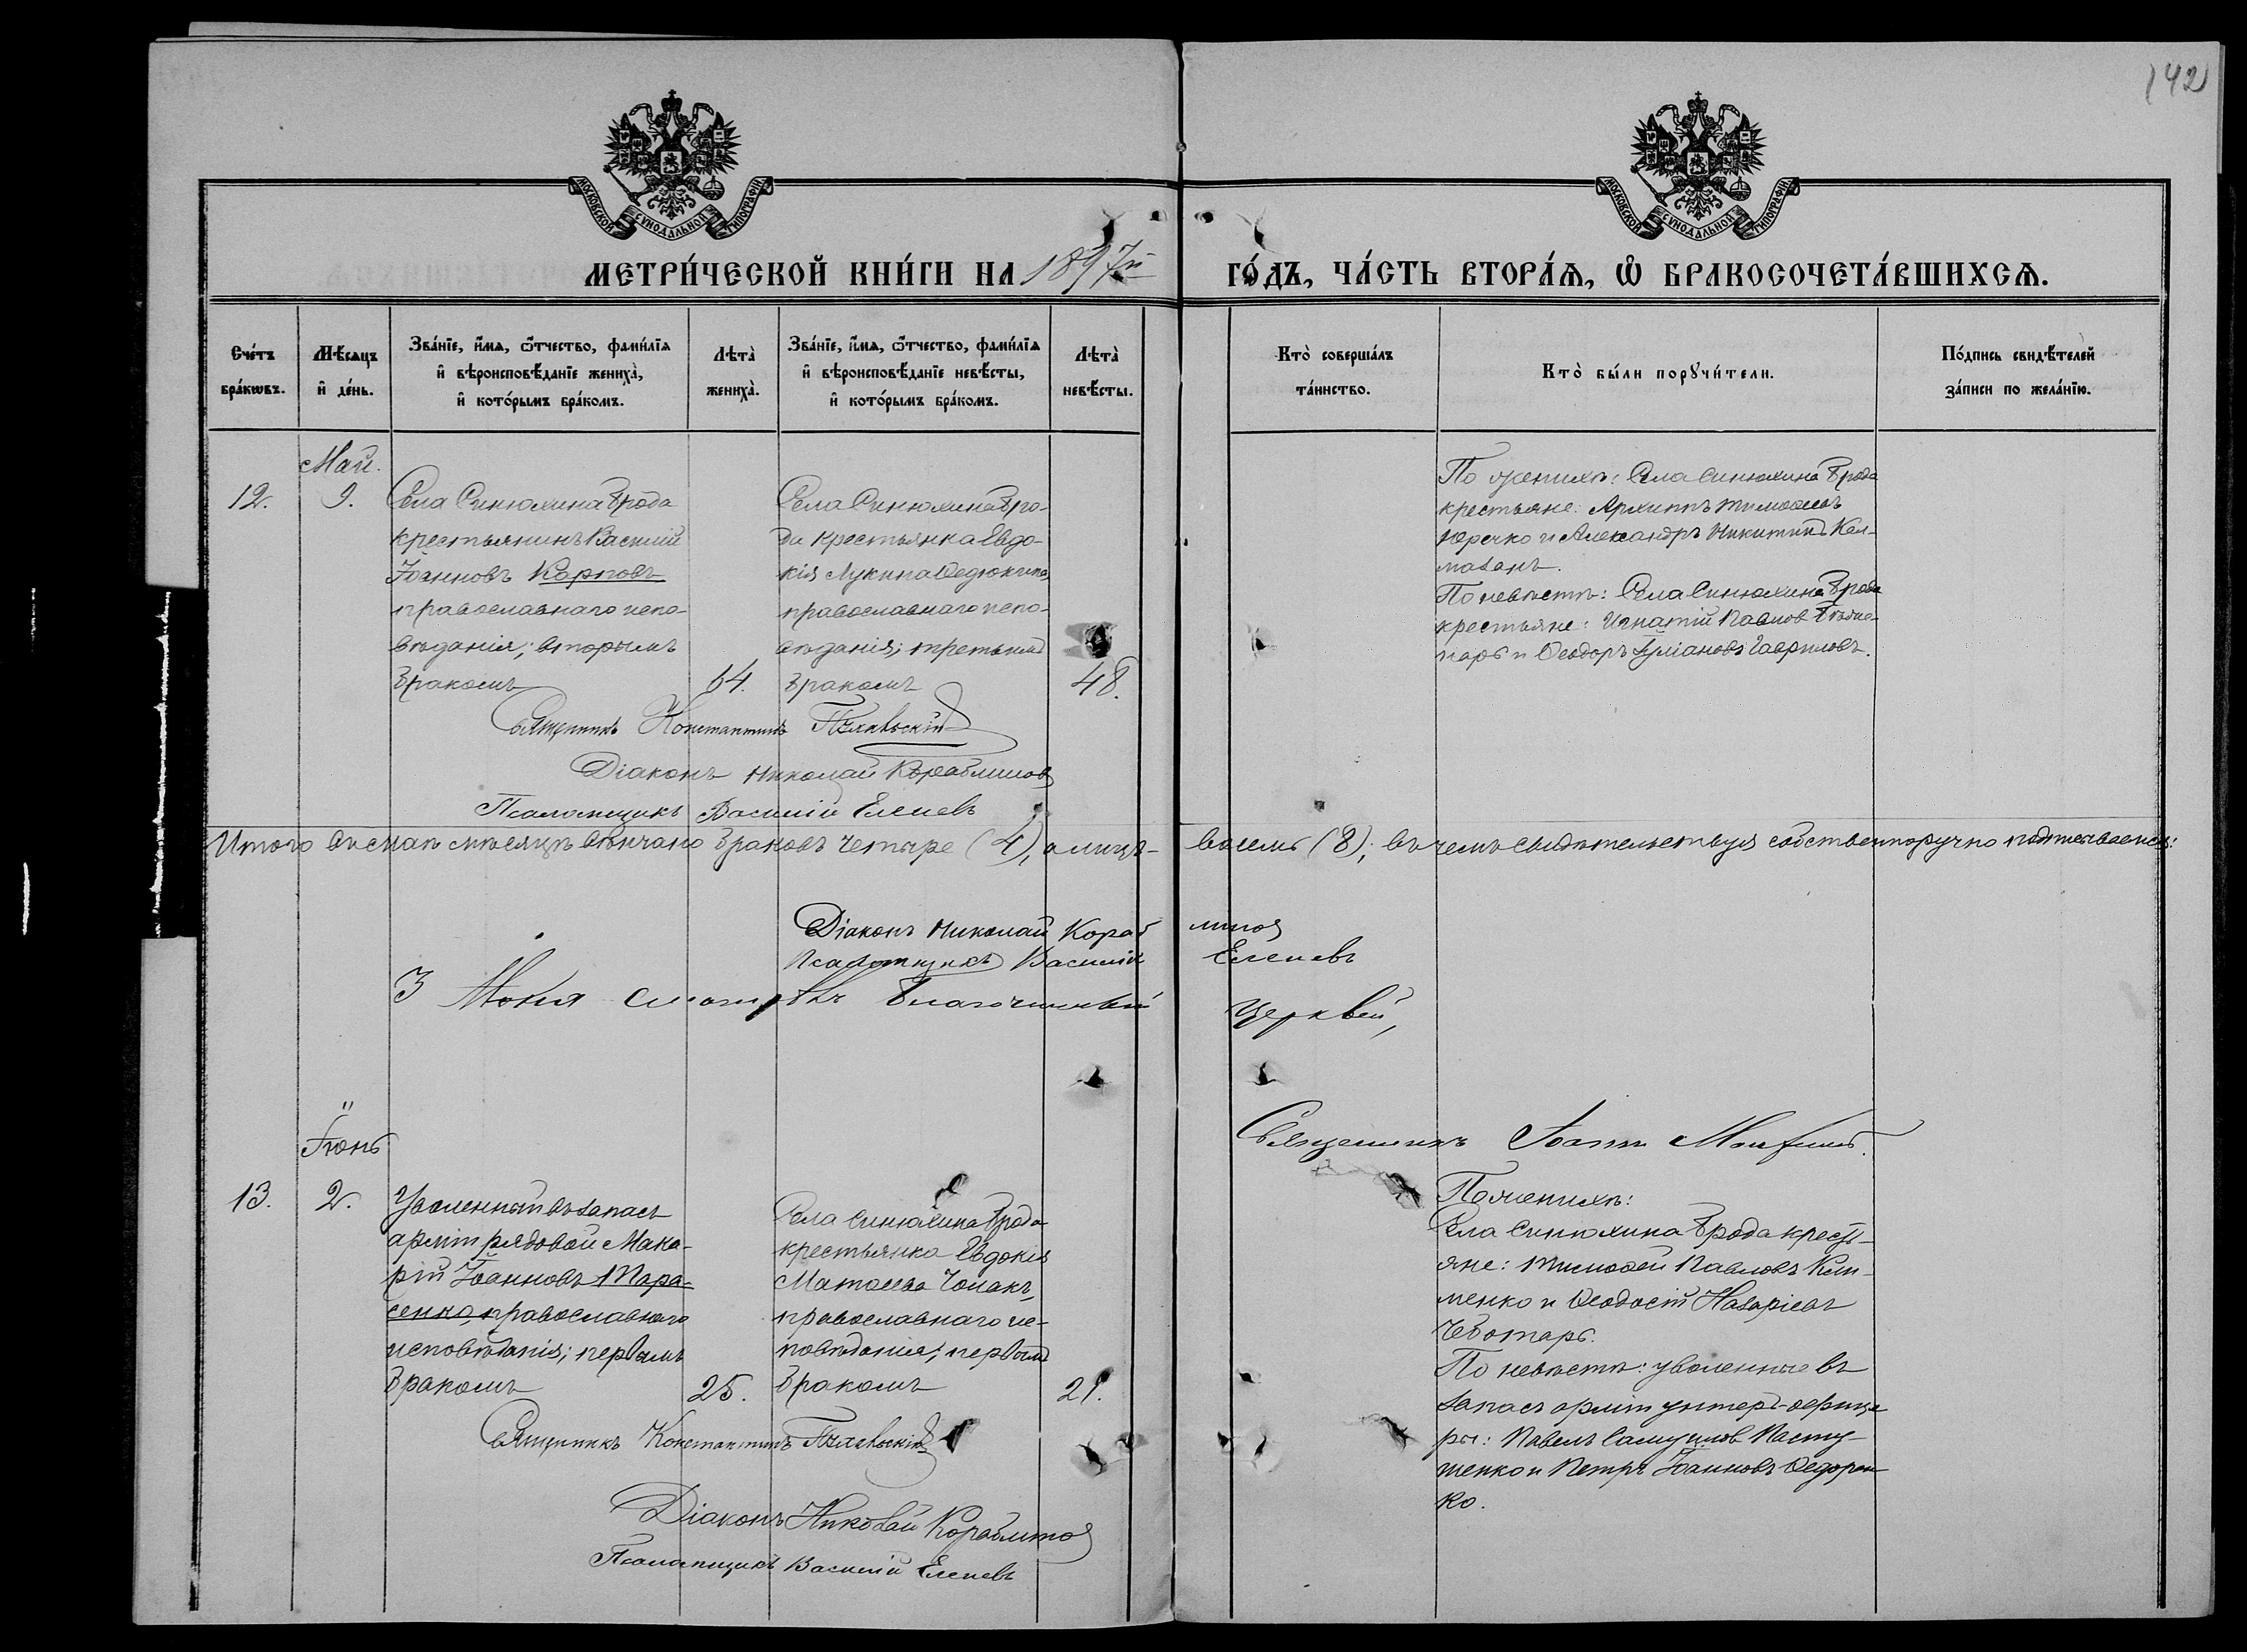 142
МОСКОВСКОЙ СѴНОДАЛЬНОЙ ТИПОГРАФІИ
МОСКОВСКОЙ СѴНОДАЛЬНОЙ ТИПОГРАФІИ
МЕТРИ́ЧЕСКОЙ КНИ́ГИ НА 1897й ГО́ДЪ, ЧА́СТЬ ВТОРА́Ѧ, Ѽ БРАКОСОЧЕТА́ВШИХСѦ.
Сче́тъ бра́кѡвъ.
Мѣ́сяцъ и҆ де́нь.
Зва́нїе, и҆́мѧ, ѻ҆́тчество, фами́лїѧ и҆ вѣроисповѣ́данїе жениха̀, и҆ кото́рымъ бра́комъ.
Лѣта̀ жениха̀.
Зва́нїе, и҆́мѧ, ѻ҆́тчество, фами́лїѧ и҆ вѣроисповѣ́данїе невѣ́сты, и҆ кото́рымъ бра́комъ.
Лѣта̀ невѣ́сты.
Кто̀ соверша́лъ та́инство.
Кто̀ бы́ли порꙋчи́тели.
По́дпись свидѣ́телей за́писи по жела́нїю.
Май.
12.
9.
Села Синюхина Брода
крестьянинъ Василій
Іоанновъ Карповъ
православнаго испо-
вѣданія; вторымъ
бракомъ
64.
Села Синюхина Бро-
да крестьянка Евдо-
кія Лукина Ѳедюкина
православнаго испо-
вѣданія; третьимъ
бракомъ
48.
По женихѣ: Села Синюхина Брода
крестьяне: Архиппъ Тимоѳеевъ
Юречко и Александръ Никитинъ Кол-
мазанъ.
По невѣстѣ: Села Синюхина Брода
крестьяне: Игнатій Павлов
и Ѳеодоръ Іуліановъ Гавриловъ.
Священникъ Константинъ
Діаконъ Николай Кораблиновъ
Псаломщикъ Василій Елиевъ
Итого въ маѣ мѣсяцѣ вѣнчано браковъ четыре (4), а лицъ- восемь (8); въ чемъ свидѣтельствуя собственноручно подписываемся:
Діаконъ Николай Кораблинов
Псаломщикъ Василій Елиевъ
З Моня смотрѣлъ Благочинный Церквей,
Священникъ Іоаннъ
Іюнь
13.
2.
Уволенный въ запасъ
арміи рядовой Мака-
рій Іоанновъ Тара-
сенко, православнаго
исповѣданія; первымъ
бракомъ
25.
Села Синюхина Брода
крестьянка Евдокія
Матѳеева Чомакъ,
православнаго ис-
повѣданія; первымъ
бракомъ
21.
По женихѣ:
Села Синюхина Брода кресть-
яне: Тимоѳей Павловъ Кли-
менко и Ѳеодосій Назаріевъ
Чеботарь.
По невѣстѣ: уволенные въ
запасъ арміи унтеръ-офице-
ры: Павелъ Самуилов Пасту-
шенко и Петръ Іоанновъ Ѳедорен-
ко.
Священникъ Константинъ
Діаконъ Николай Кораблинов
Псаломщикъ Василій Елиевъ